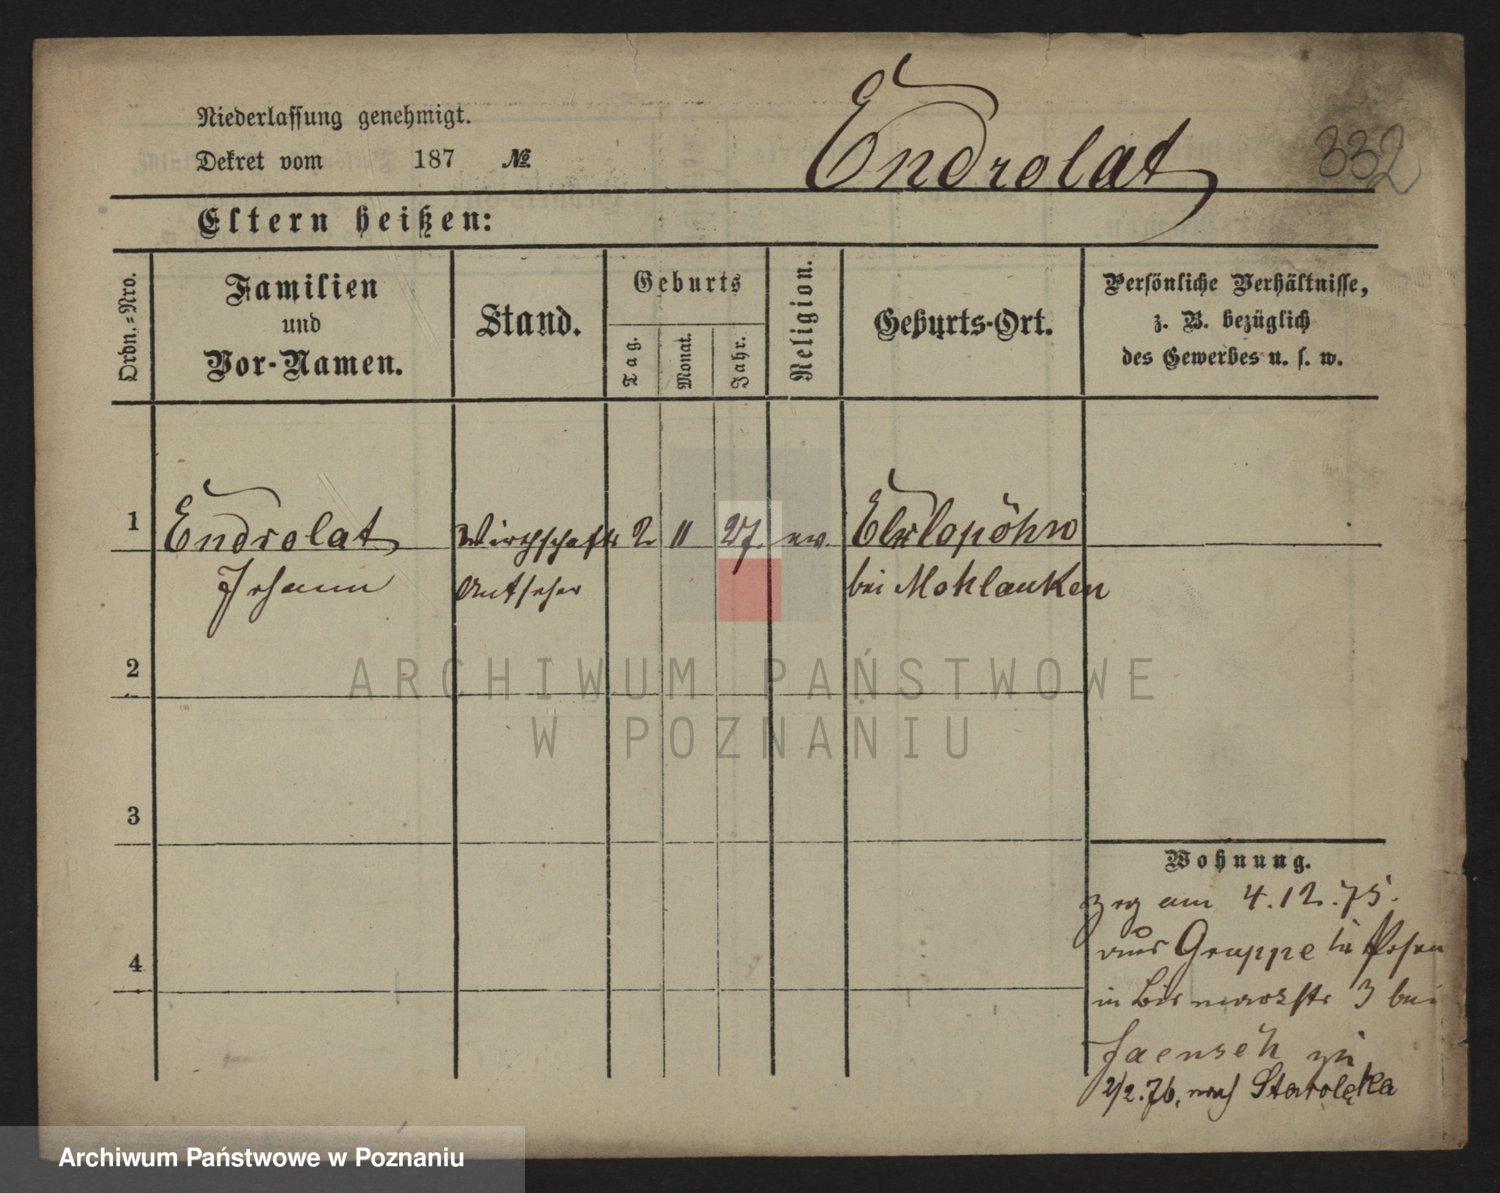 Niederlassung genehmigt.
Dekret vom 187 №
Endrolat
332
Eltern heißen:
Ordn.=Nro.
Familien
und
Vor-Namen.
Stand.
Geburts
Tag.
Monat.
Jahr.
Religion.
Geburts-Ort.
Persönliche Verhältnisse,
z. B. bezüglich
des Gewerbes u. s. w.
1 Endrolat Wirthschafts 2 11 27. ev.
Johann bei Mohlauken
2
ARCHIWUM PAŃSTWOWE
W POZNANIU
3
4
Wohnung.
zog am 4.12.75.
aus Gruppe in Posen
in Bismarckstr 3 bei
Jaensch zu
2/2.76. nach Starolęka
Archiwum Państwowe w Poznaniu